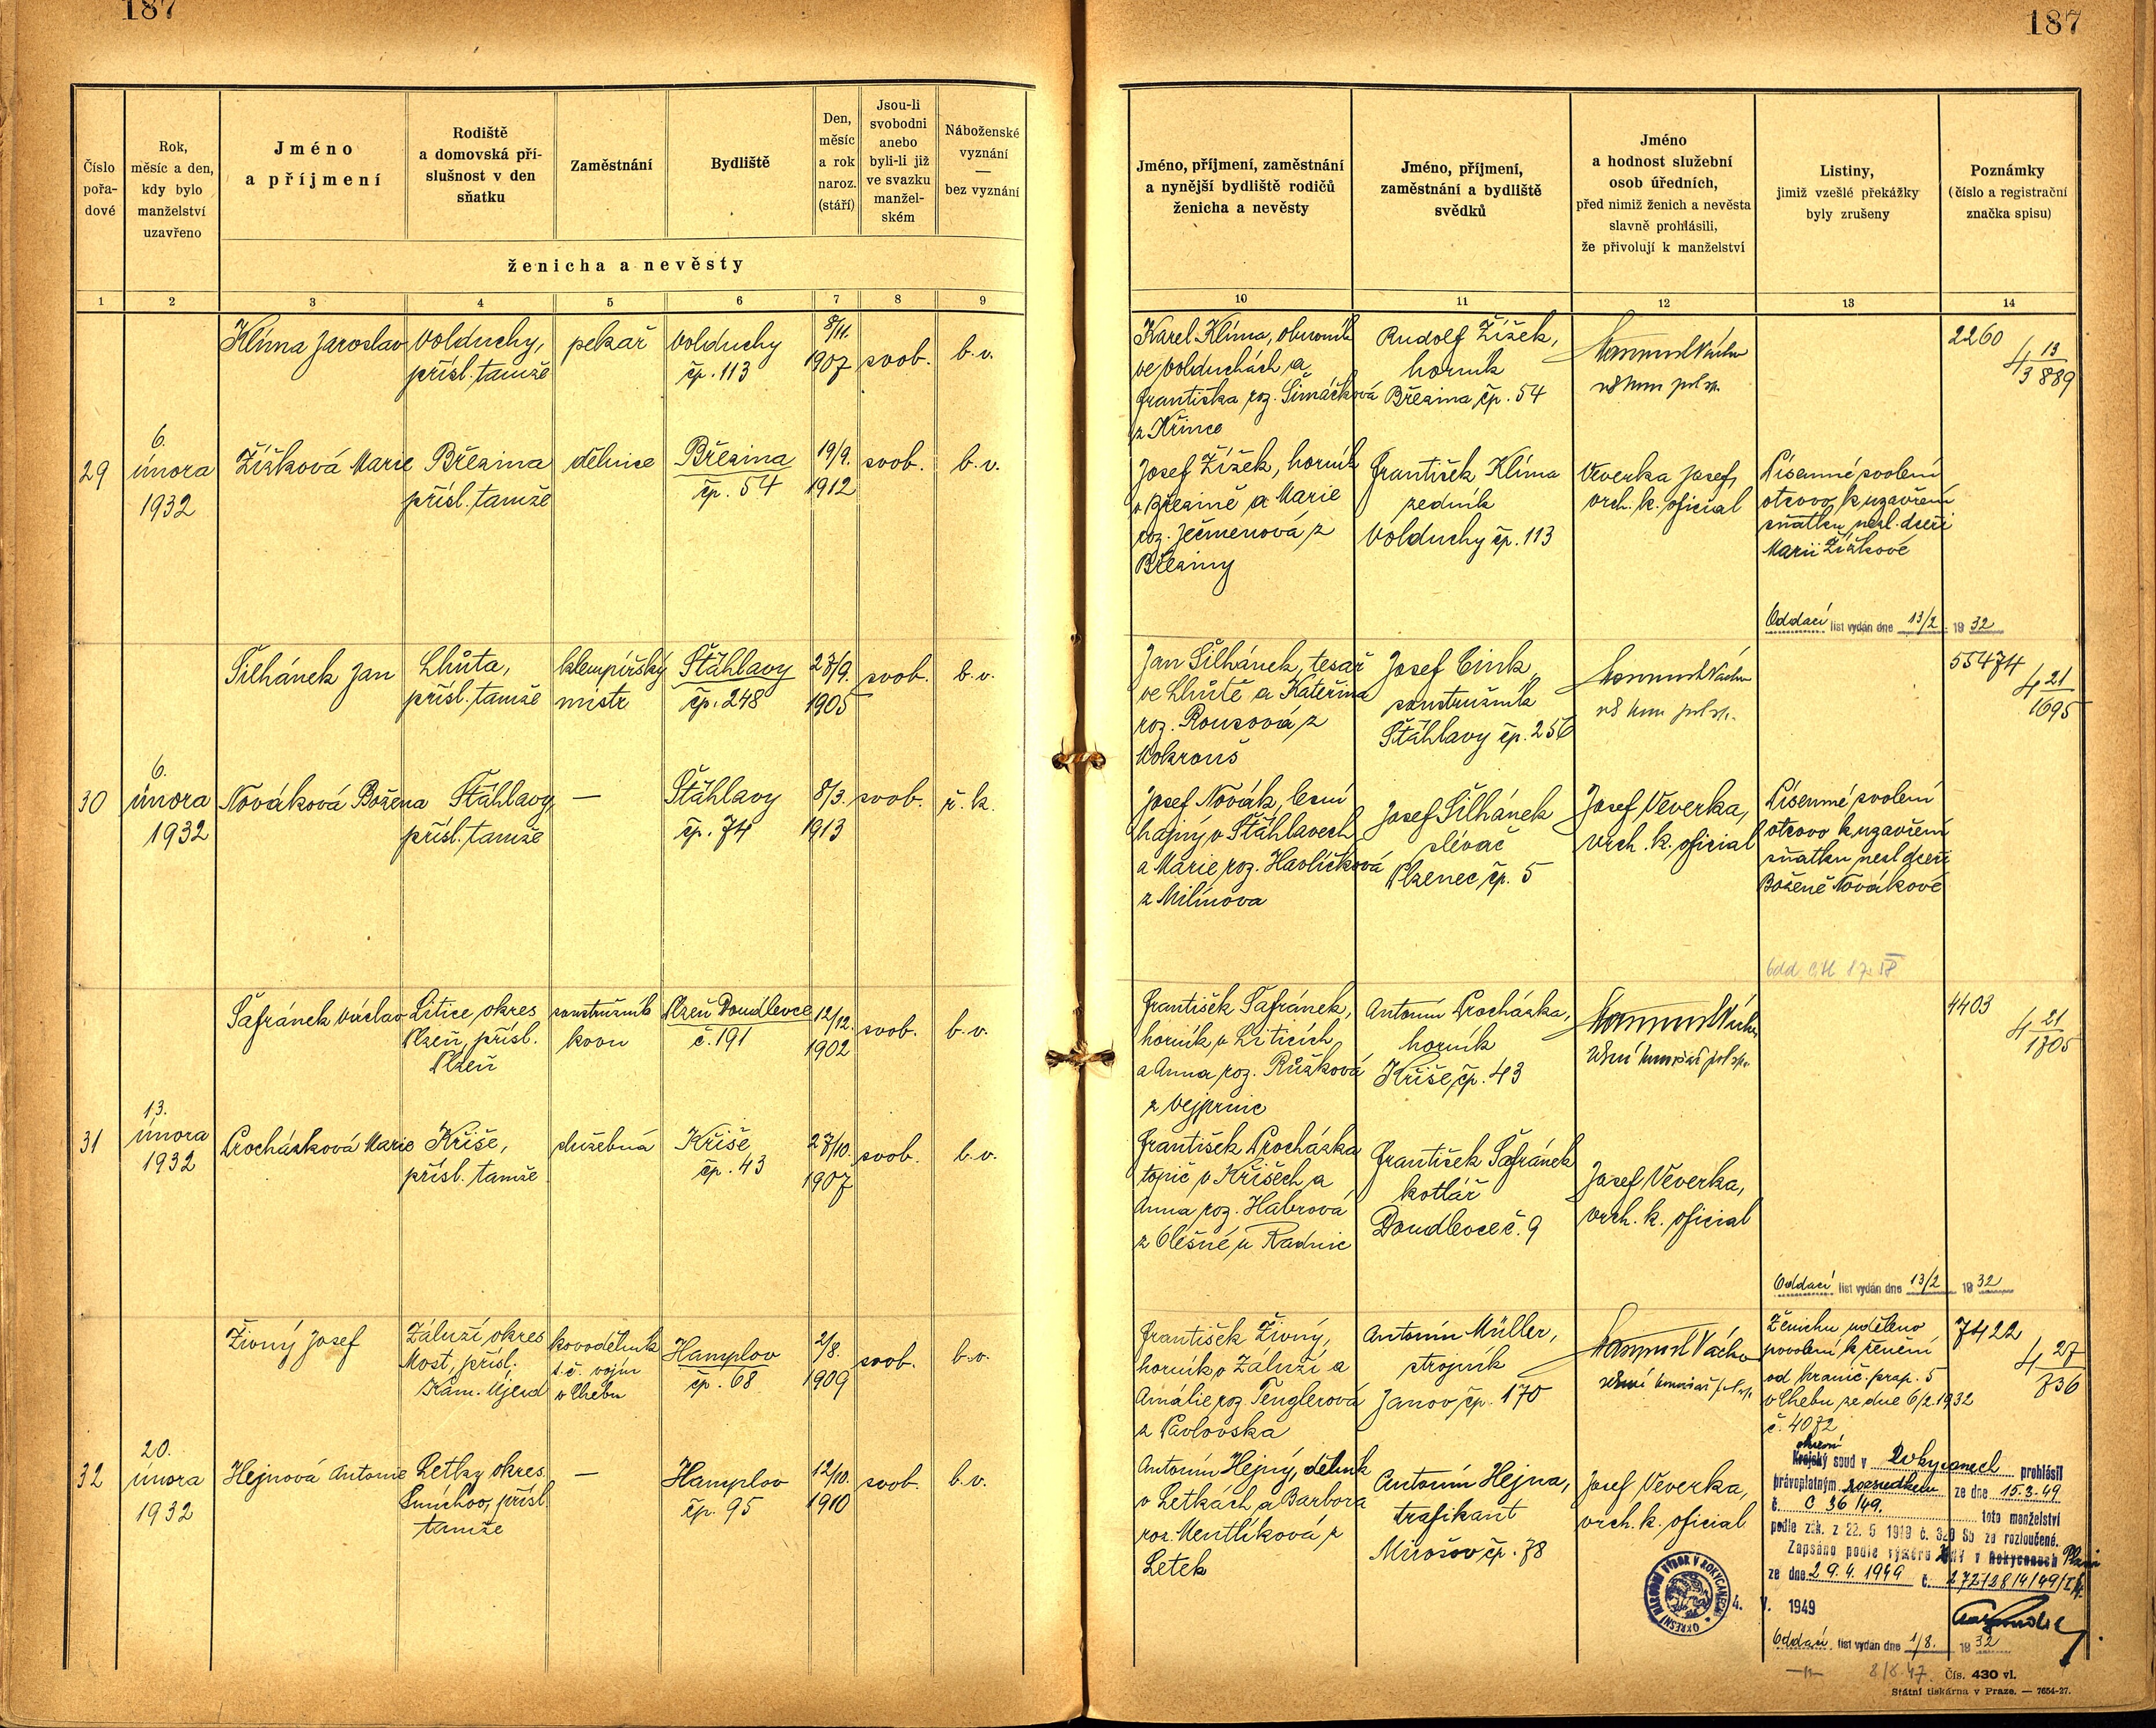 187
187
Číslo pořa- dové
Rok, měsíc a den, kdy bylo manželství uzavřeno
Jméno a příjmení
Rodiště a domovská pří- slušnost v den sňatku
Zaměstnání
Bydliště
Den, měsíc a rok naroz. (stáří)
Jsou-li svobodni anebo byli-li již ve svazku manžel- ském
Náboženské vyznání — bez vyznání
ženicha a nevěsty
Jméno, příjmení, zaměstnání a nynější bydliště rodičů ženicha a nevěsty
Jméno, příjmení, zaměstnání a bydliště svědků
Jméno a hodnost služební osob úředních, před nimiž ženich a nevěsta slavně prohlásili, že přivolují k manželství
Listiny, jimiž vzešlé překážky byly zrušeny
Poznámky (číslo a registrační značka spisu)
1 2 3 4 5 6 7 8 9
10 11 12 13 14
Klíma Jaroslav
Volduchy,
přísl. tamže
pekař
Volduchy
čp. 113
8/11.
1907
svob.
b.v.
Karel Klíma, obuvník
ve Volduchách a
Františka roz. Šimáčková
z Křince
Rudolf Žížek,
horník
Březina čp. 54
2260
4 13
3889
29
6.
února
1932
Žížková Marie
Březina
přísl. tamže
dělnice
Březina
čp. 54
19/9.
1912
svob.
b.v.
Josef Žížek, horník
v Březině a Marie
roz. Ječmenová z
Březiny
František Klíma
zedník
Volduchy čp. 113
Veverka Josef,
vrch. k. oficial
Písemné svolení
otcovo k uzavření
sňatku nezl. dceři
Marii Žížkové
Oddací list vydán dne 13/2 1932
Šilhánek Jan
Lhůta,
přísl. tamže
klempířský
mistr
Šťáhlavy
čp. 248
27/9.
1905
svob.
b.v.
Jan Šilhánek, tesař
ve Lhůtě a Kateřina
roz. Rousová z
Vokrouš
Josef Cink
soustružník
Šťáhlavy čp. 256
55474
4 21
1695
30
6.
února
1932
Nováková Božena
Šťáhlavy,
přísl. tamže
—
Šťáhlavy
čp. 74
8/3.
1913
svob.
ř.k.
Josef Novák, lesní
hajný v Šťáhlavech
a Marie roz. Havlíčková
z Milínova
Josef Šilhánek
slévač
Plzenec čp. 5
Josef Veverka,
vrch. k. oficial
Písemné svolení
otcovo k uzavření
sňatku nezl dceři
Boženě Novákové
Šafránek Václav
Litice, okres
Plzeň, přísl.
Plzeň
soustružník
kovu
Plzeň Doudlevce
č. 191
12/12.
1902
svob.
b.v.
František Šafránek,
horník v Liticích
a Anna roz. Růžková
z Vejprnic
Antonín Procházka,
horník
Kříše čp. 43
4403
4 21
1705
31
13.
února
1932
Procházková Marie
Kříše,
přísl. tamže
služebná
Kříše
čp. 43
27/10.
1907
svob.
b.v.
František Procházka
topič v Kříších a
Anna roz. Habrová
z Olešné u Radnic
František Šafránek
kotlář
Doudlevce č. 9
Josef Veverka,
vrch. k. oficial
Oddací list vydán dne 13/2 1932
Živný Josef
Záluží, okres
Most, přísl.
Kam. Újezd
kovodělník
t.č. vojín
v Chebu
Hamplov
čp. 68
2/8.
1909
svob.
b.v.
František Živný,
horník v Záluží a
Amálie roz. Tenglerová
z Pavlovska
Antonín Müller,
strojník
Janov čp. 170
Ženichu uděleno
povolení k ženění
od hranič. prap. 5
v Chebu ze dne 6/2. 1932
č. 4072
7422
4 27
736
32
20.
února
1932
Hejnová Antonie
Letky okres
Smíchov, přísl.
tamže
—
Hamplov
čp. 95
12/10.
1910
svob.
b.v.
Antonín Hejný, dělník
v Letkách a Barbora
roz. Mentlíková z
Letek
Antonín Hejna,
trafikant
Mirošov čp. 78
Josef Veverka,
vrch. k. oficial
okresní
Krajský soud v Rokycanech prohlásil
právoplatným rozsudkem ze dne 15.3.49
č. C 36/49. toto manželství
podle zák. z 22. 5 1919 č. 320 Sb za rozloučené.
Zapsáno podle výměru KNV v Rokycanech Plzni
ze dne 29.4.1949 č. 272/28/4/49/I/4.
4. V. 1949
OKRESNÍ NÁRODNÍ VÝBOR V ROKYCANECH
Oddací list vydán dne 1/8. 1932
8/8 47
Čís. 430 vl.
Státní tiskárna v Praze. — 7654-27.